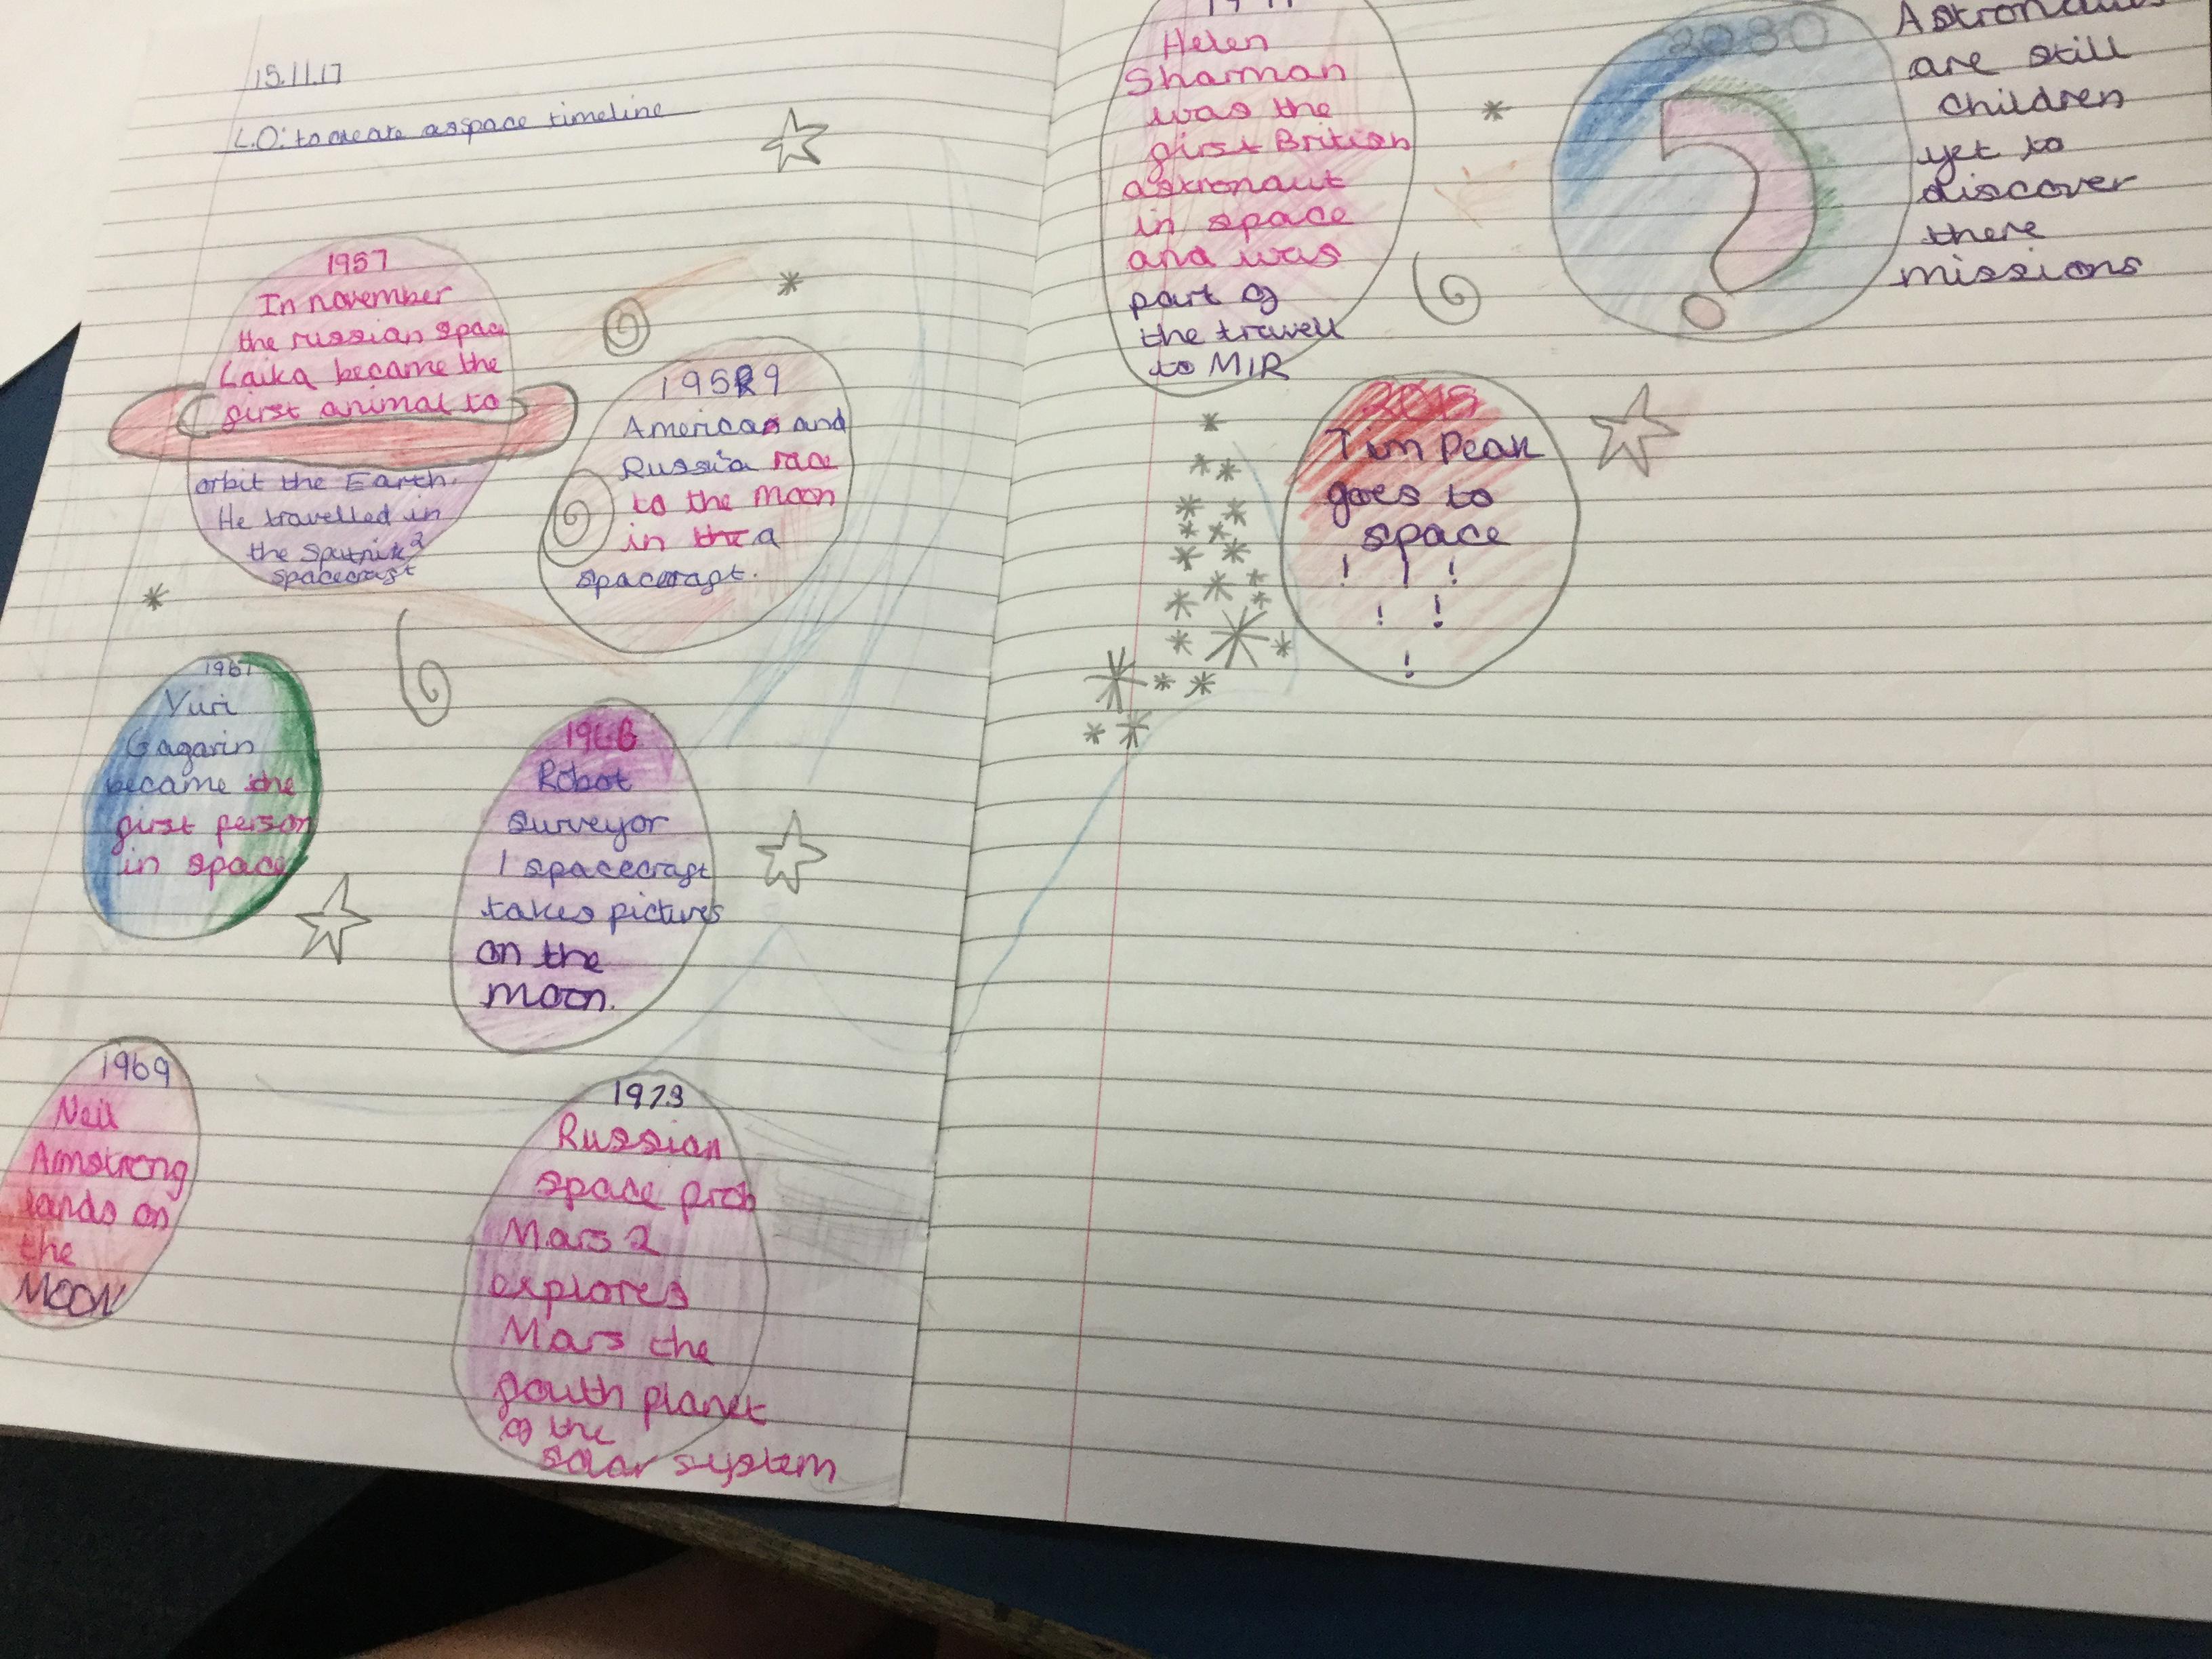 15.11.17
L.O: to create a space timeline
1957
In november
the russian spac
Laika became the
first animal to
orbit the Earth.
He travelled in
the Sputnik 2
spacecraft
1959
American and
Russia race
to the moon
in the a
spacecraft.
1961
Yuri
Gagarin
became the
first person
in space
1966
Robot
surveyor
1 spacecraft
takes pictures
on the
moon.
1969
Neil
Armstrong
lands on
the
MOON
1973
Russian
space prob
Mars 2
explores
Mars the
fouth planet
of the
solar system
Helen
Sharman
was the
first British
astronaut
in space
and was
part of
the travell
to MIR
2015
Tim Peak
goes to
space
! ! !
! !
!
2030
?
Astronauts
are still
children
yet to
discover
there
missions